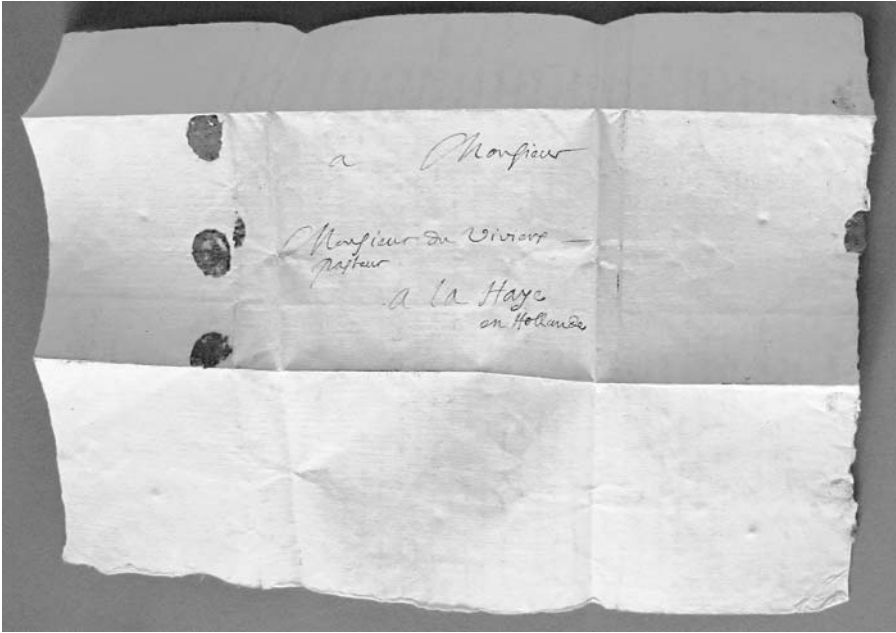 a Monsieur
Monsieur du Viviers
pasteur
a la Haye
en Hollande